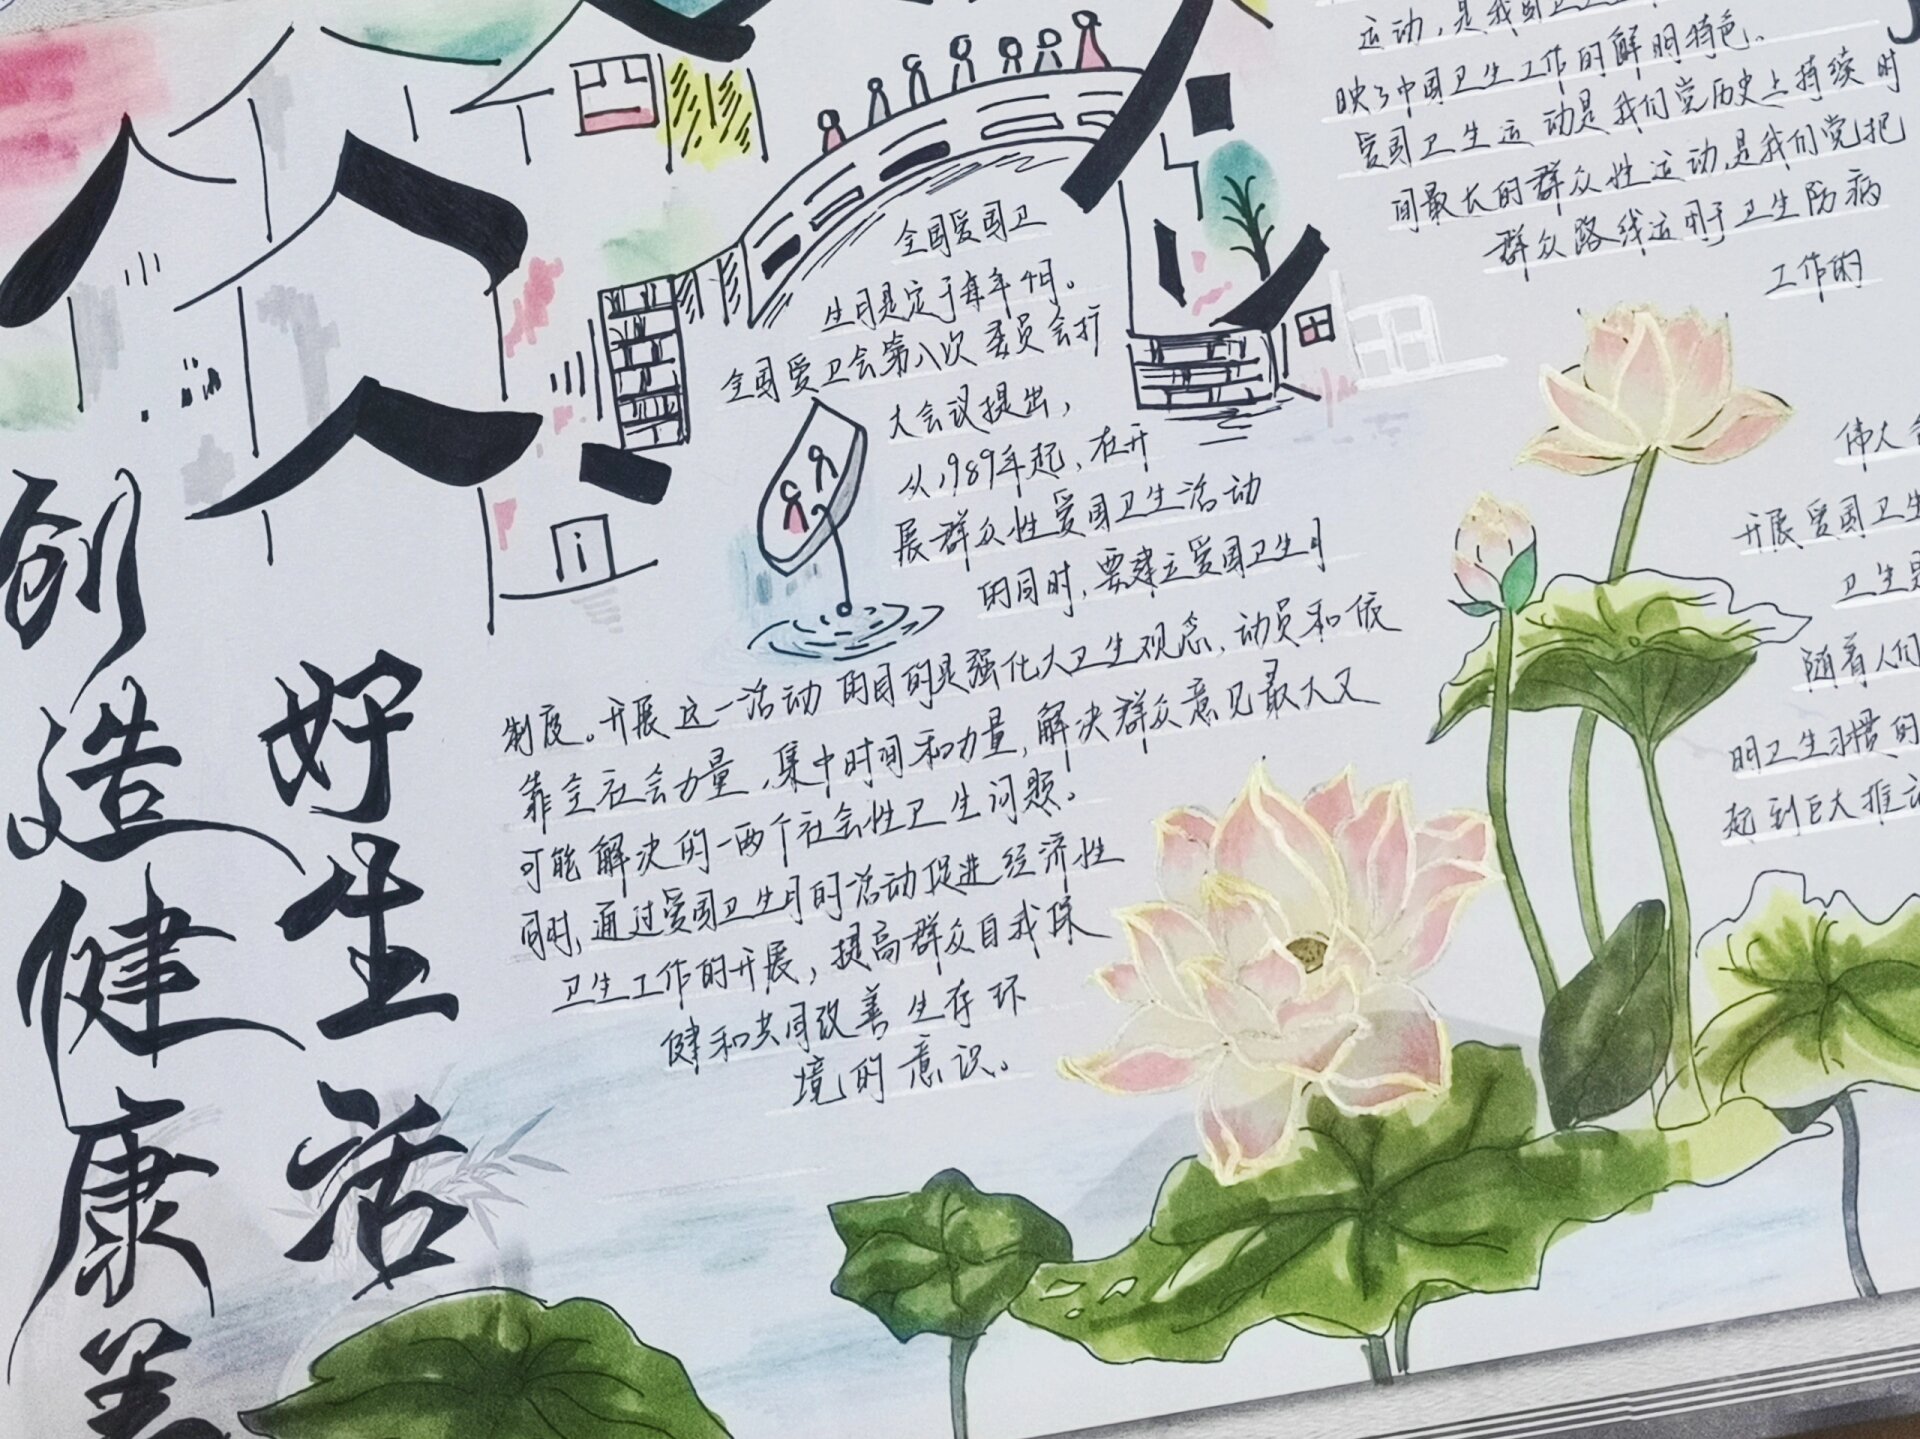 创造健康美
好生活
全国爱国卫
生月是定于每年4月。
全国爱卫会第八次委员会扩
大会议提出，
从1989年起，在开
展群众性爱国卫生活动
的同时，要建立爱国卫生月
制度。开展这一活动的目的是强化大卫生观念，动员和依
靠全社会力量，集中时间和力量，解决群众意见最大又
可能解决的一两个社会性卫生问题。
同时，通过爱国卫生月的活动促进经济性
卫生工作的开展，提高群众自我保
健和共同改善生存环
境的意识。
运动，是我国卫
映了中国卫生工作的鲜明特色。
爱国卫生运动是我们党历史上持续时
间最长的群众性运动，是我们党把
群众路线运用于卫生防病
工作的
伟大
开展爱国卫生
卫生
随着人们
明卫生习惯的
起到巨大推动